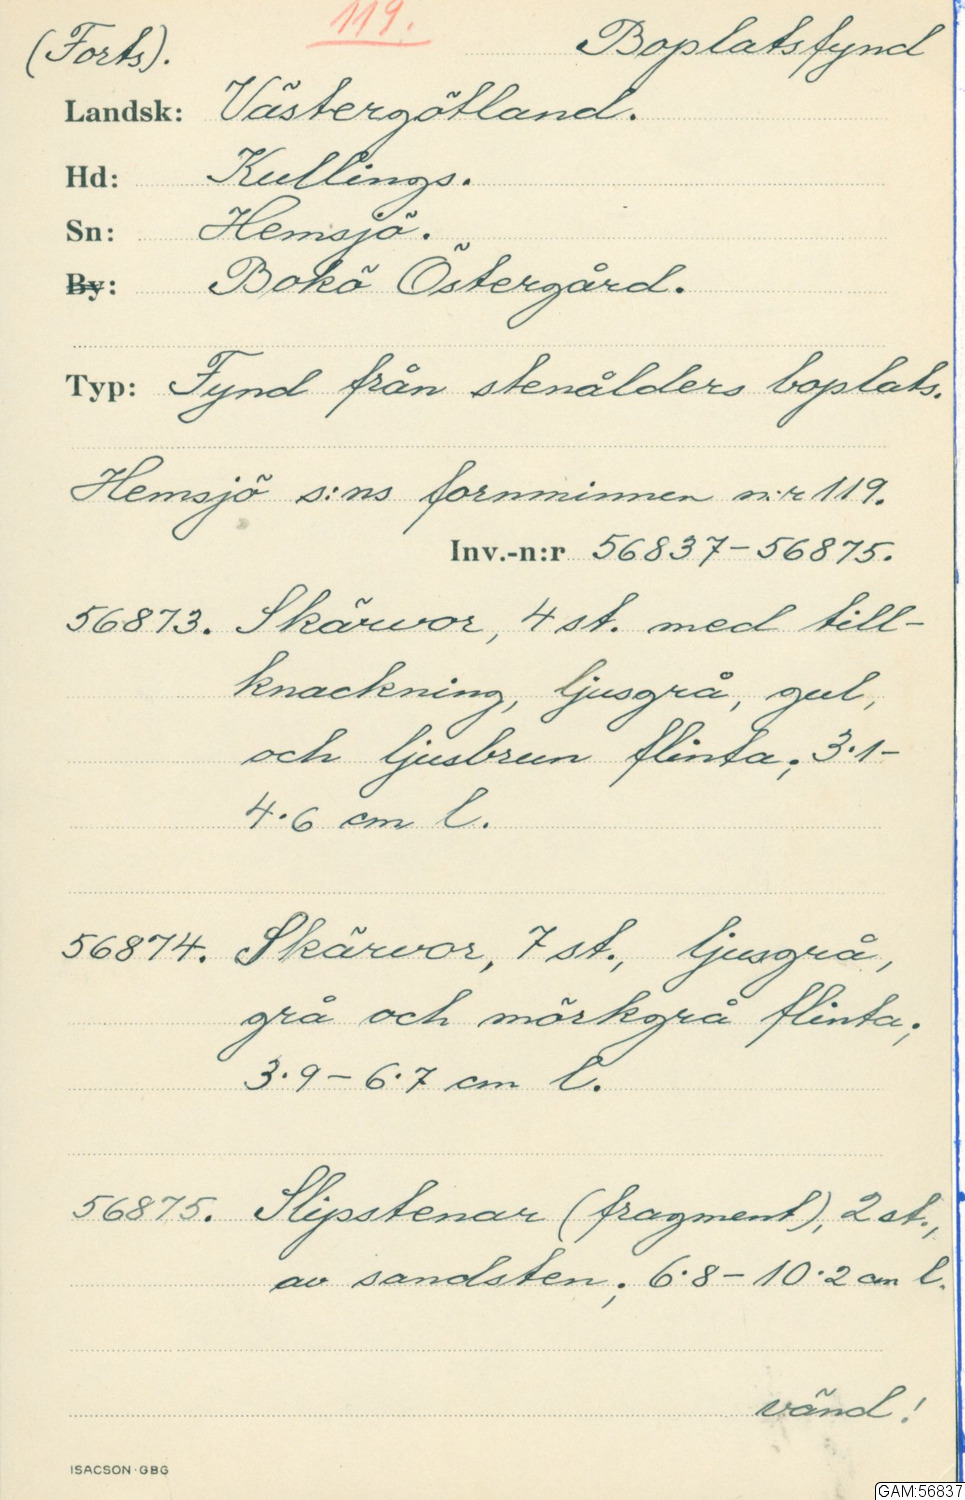 119.
(Forts). Boplatsfynd
Landsk: Västergötland.
Hd: Kullings.
Sn: Hemsjö.
By: Bokö Östergård.
Typ: Fynd från stenålders boplats.
Hemsjö s:ns fornminnen n:r 119.
Inv.-n:r 56837-56875.
56873. Skärvor, 4 st. med till-
knackning, ljusgrå, gul,
och ljusbrun flinta; 3·1-
4·6 cm l.
56874. Skärvor, 7 st., ljusgrå,
grå och mörkgrå flinta;
3·9-6·7 cm l.
56875. Slipstenar (fragment), 2 st.,
av sandsten; 6·8-10·2 cm l.
vänd!
ISACSON·GBG
GAM:56837